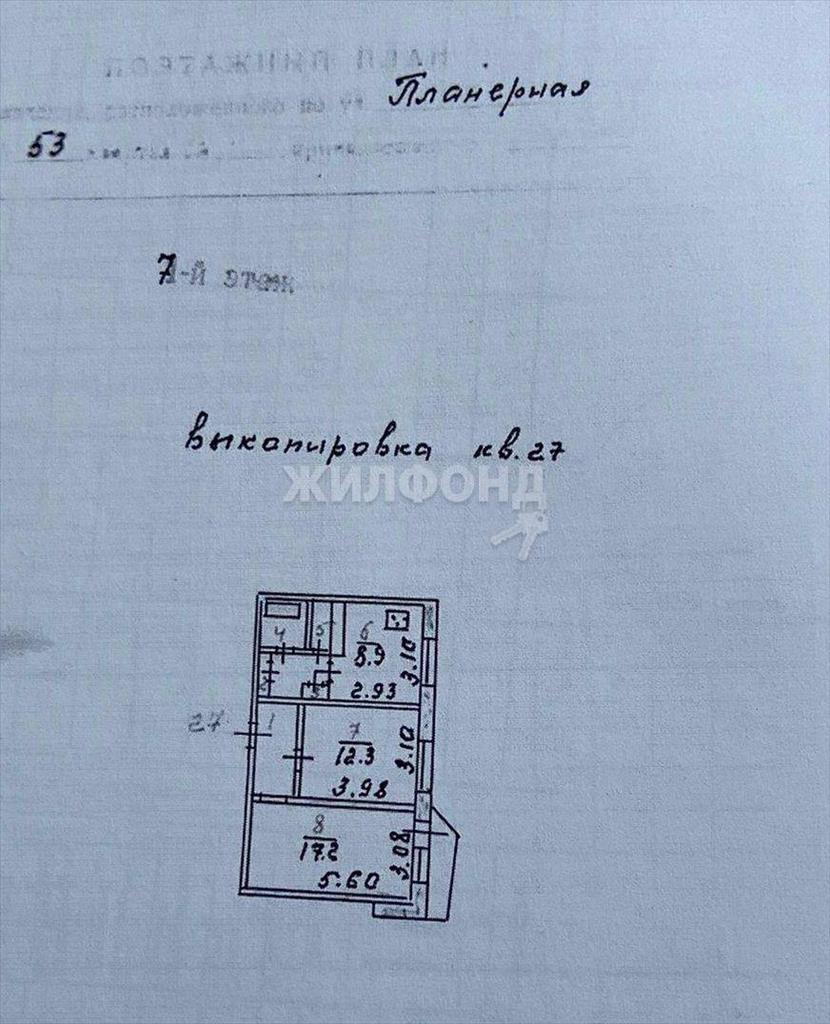 ПОЭТАЖНЫЙ ПЛАН
Планерная
53
7-й этаж
выкопировка кв.27
ЖИЛФОНД
4 5 6
8.9
3.10
2
3
2.93
27 1
7
12.3
3.10
3.98
8
17.2
3.08
5.60